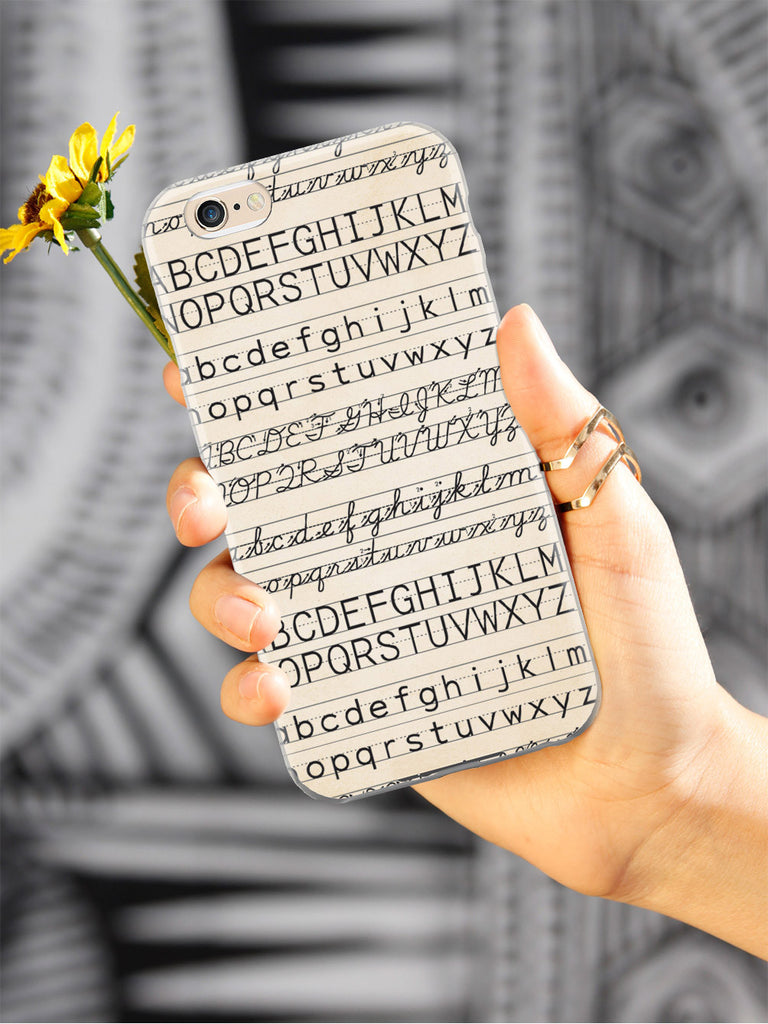 nuvwxyz
ABCDEFGHIJKLM
NOPQRSTUVWXYZ
abcdefghijklm
nopqrstuvwxyz
ABCDEFGHIJKLM
NOPQRSTUVWXYZ
abcdefghijklm
opqrstuvwxyz
BCDEFGHIJKLM
OPQRSTUVWXYZ
abcdefghijklm
opqrstuvwxyz